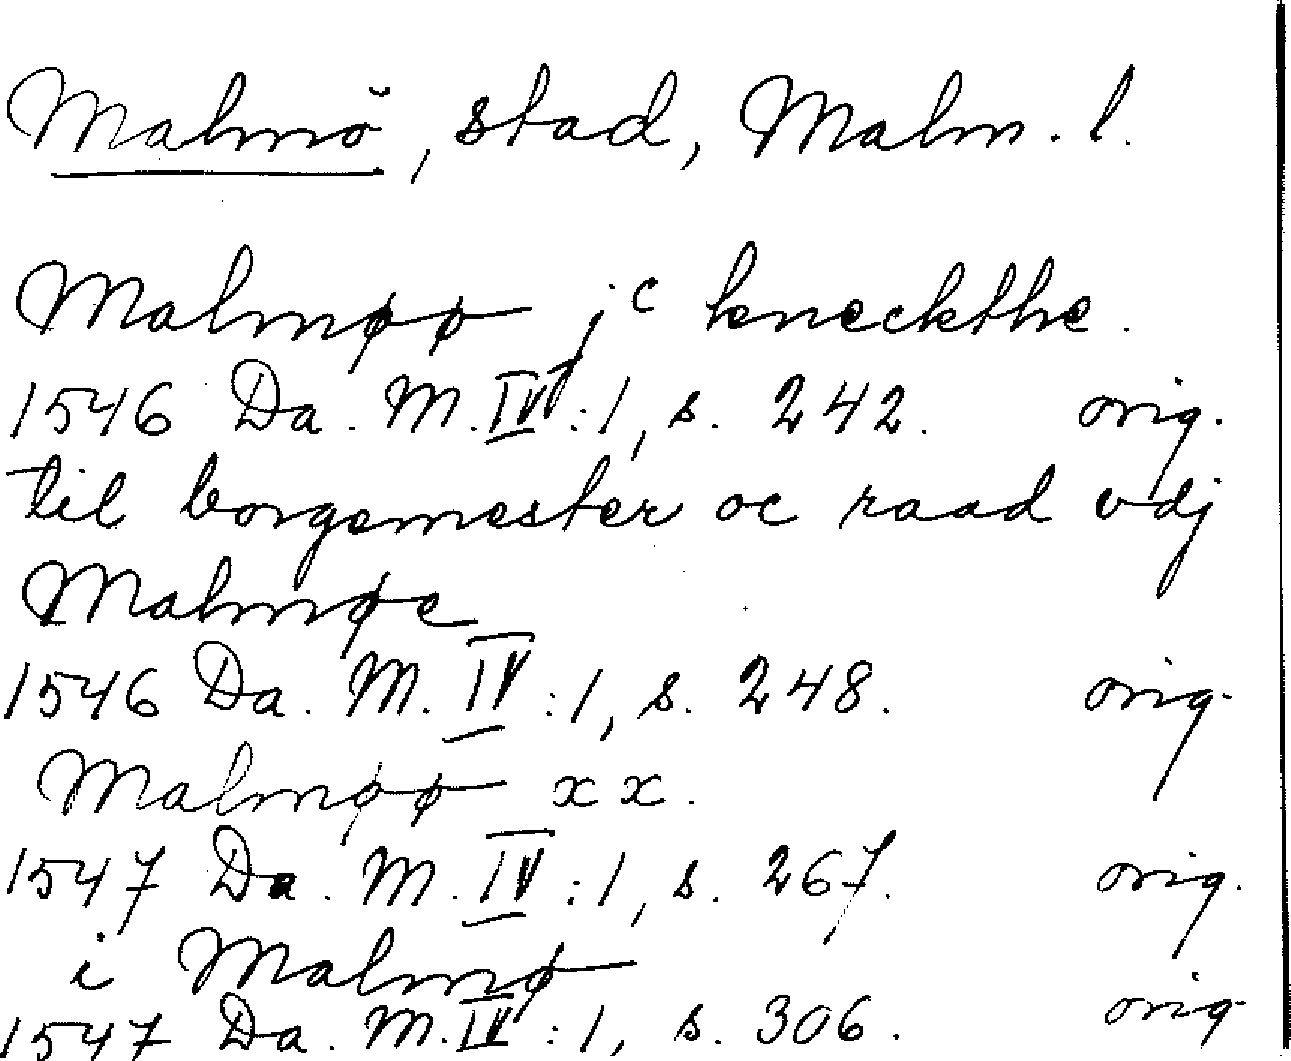 Malmö, stad, Malm. l.
Malmøø jc kneckthe.
1546 Da. M. IV:1, s. 242. orig.
til borgemester oc raad vdj
Malmøe
1546 Da. M. IV:1, s. 248. orig.
Malmøø xx.
1547 Da. M. IV:1, s. 267. orig.
i Malmø
1547 Da. M. IV:1, s. 306. orig